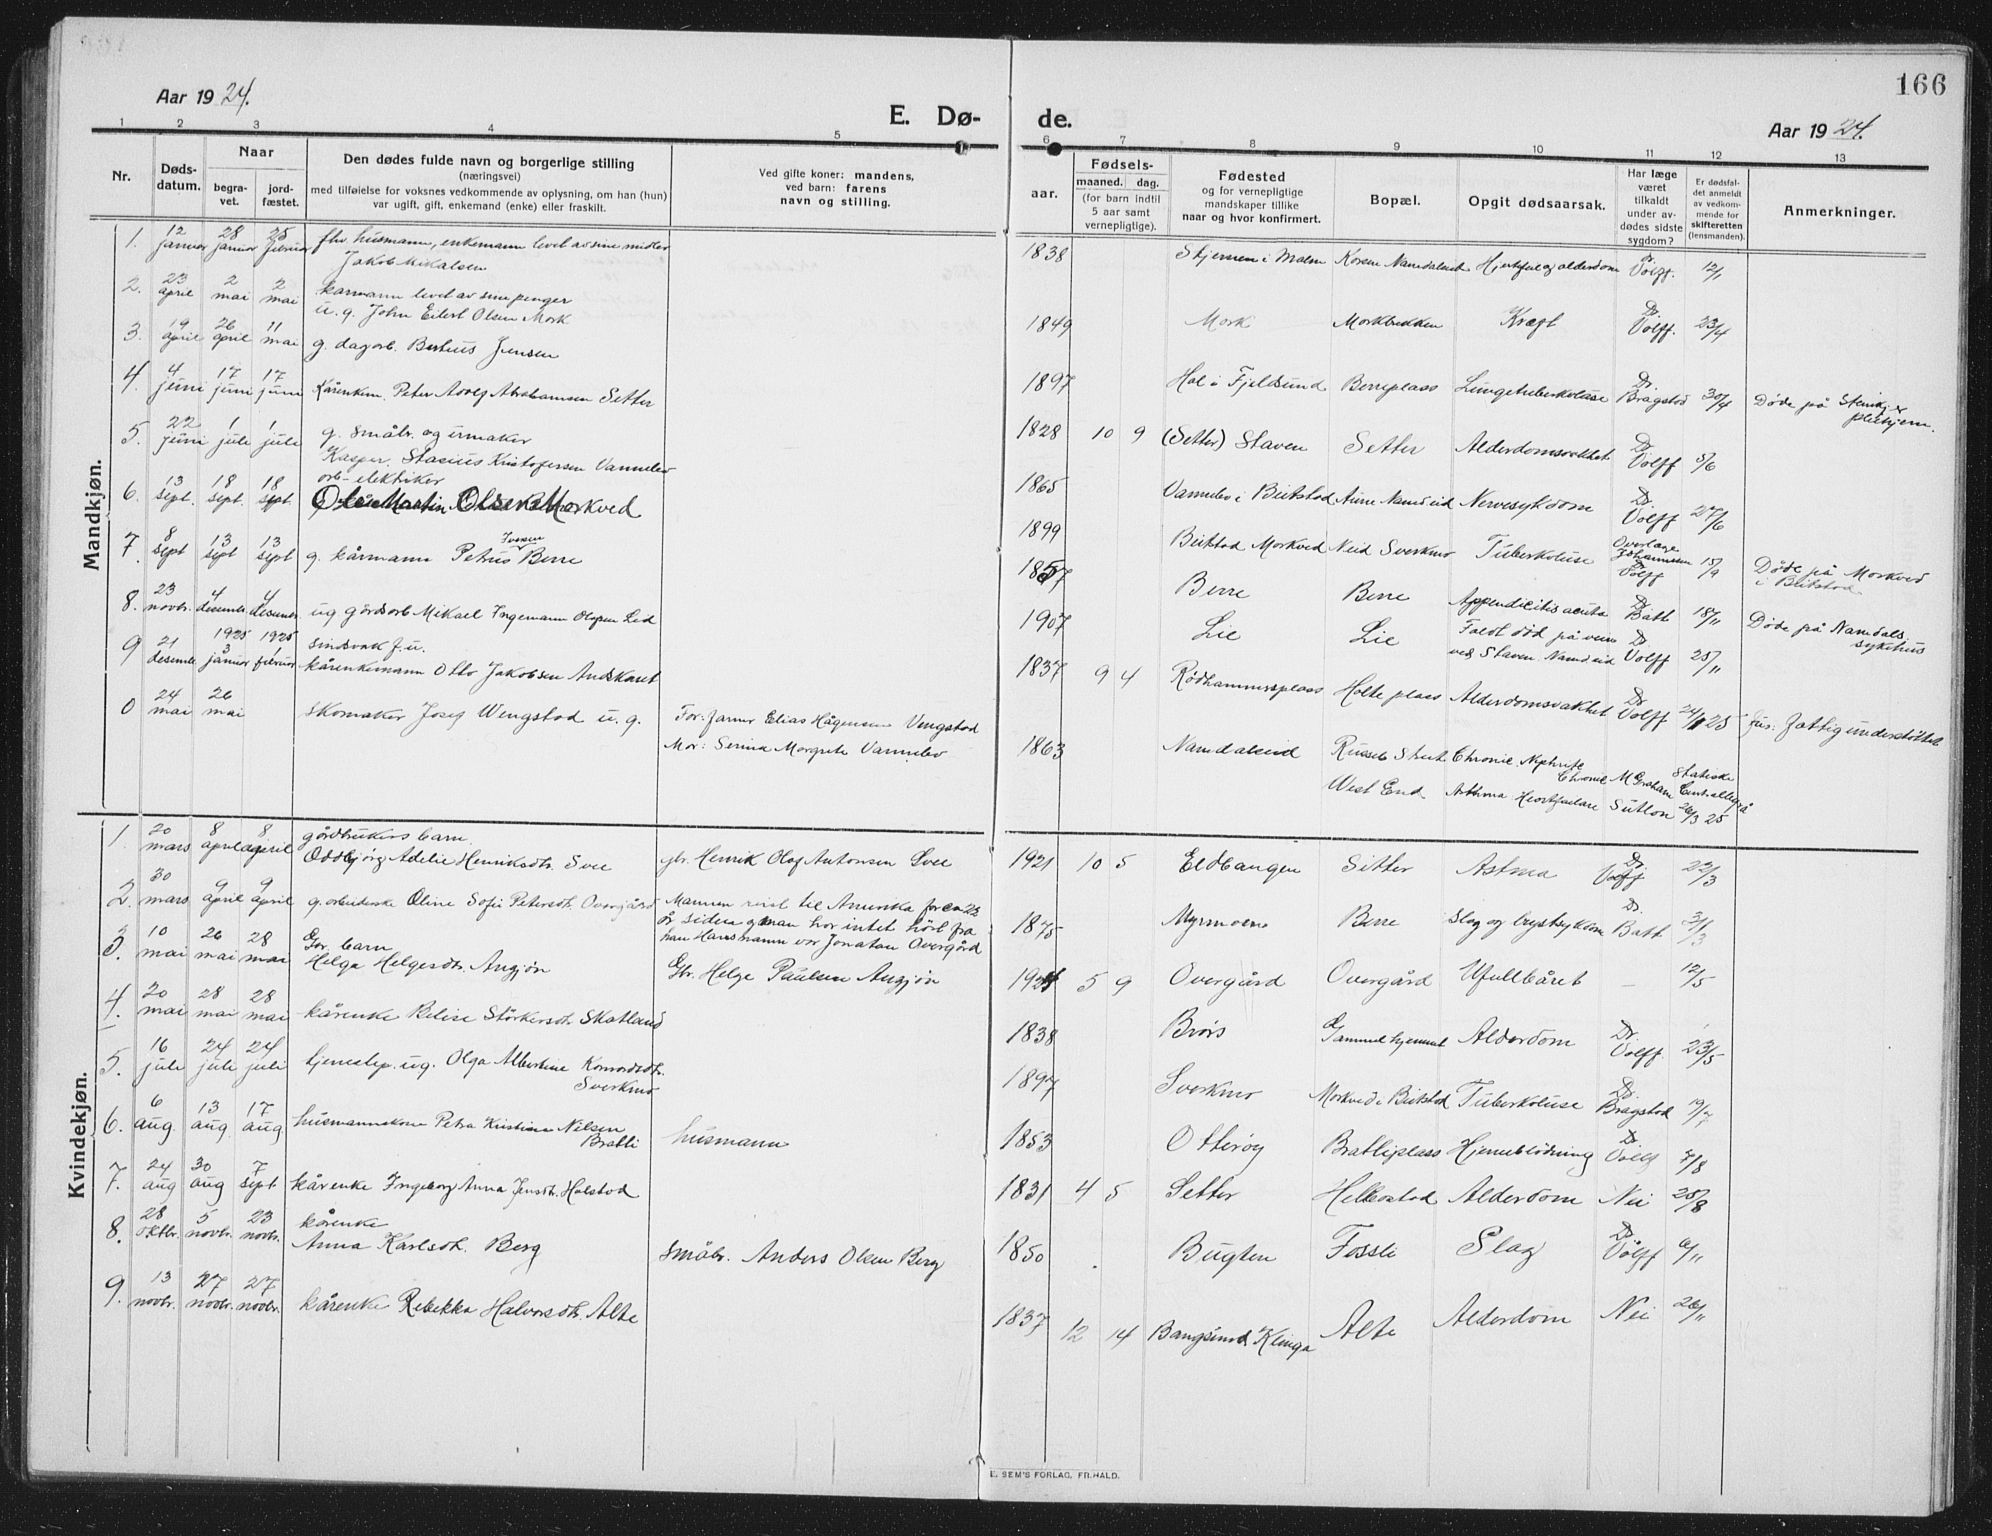 166
Aar 1924.
E. Dø- de.
Aar 1924.
1 2 3 4 5 6 7 8 9 10 11 12 13
Nr.
Døds-datum.
Naar
begra-vet.
jord-fæstet.
Den dødes fulde navn og borgerlige stilling
(næringsvei)
med tilføielse for voksnes vedkommende av oplysning, om han (hun)
var ugift, gift, enkemand (enke) eller fraskilt.
Ved gifte koner: mandens,
ved barn: farens
navn og stilling.
Fødsels-
aar.
maaned. dag.
(for barn indtil
5 aar samt
vernepligtige).
Fødested
og for vernepligtige
mandskaper tillike
naar og hvor konfirmert.
Bopæl.
Opgit dødsaarsak.
Har læge
været
tilkaldt
under av-
dødes sidste
sygdom?
Er dødsfal-
det anmeldt
av vedkom-
mende for
skifteretten
(lensmanden).
Anmerkninger.
Mandkjøn.
1. 12 januar 28 januar 25 februar fhv. husmann, enkemann levet av sine midler
Jakob Mikalsen
1838 i Malm Namdalseid og alderdom 12/1
2. 23 april 2 mai 2 mai kårmann levet av sine penger
u. g. John Eilert Olsen Mork
1849 Mork Morkbekken Kræft 23/4
3. 19 april 26 april 11 mai g. dagarb. Jensen
1897 Hol i Fjeldsund Berreplass Lungetuberkulose Dr. Bragstad 30/4 Døde på pleiehjem.
4. 4 juni 17 juni 17 juni Kårenkem. Peter Adolf Abrahamsen Setter
1828 10 9 (Setter) Staven Setter Dr. 5/6
5. 22 juni 1 juli 1 juli g. småbr. og urmaker
Kasper Kristofersen Vannebo
1865 i Beitstad Namdseid Nervesykdom Dr. 27/6
6. 13 sept. 18 sept. 18 sept. elektriker
Ole Martin Olsen Morkved
1899 Beitstad Morkved Sverkmo Tuberkulose Overlæge Johannessen 15/9 Døde på Morkved
i Beitstad
7. 8 sept 13 sept 13 sept g. kårmann Petrus Iversen Berre
1857 Berre Berre Appendicitis acuta Dr. Batt 18/11 Døde på Namdals
sykehus
8. 23 novbr. 4 desembr 4 desembr ug gårdsarb Mikael Ingemann Olsen Lid
1907 Lie Lie Faldt død på veien
ved Staven. Namdseid Dr. 25/11
9 21 desembr 1925 3 januar 1925 1 februar sindsvak f. u.
kårenkemann Otto Jakobsen Andskaret
1837 9 4 Rødhammersplass Holte plass Dr. 25 Fattigunderstøttet
0 24 mai 26 mai skomaker Josef Wengstad u. g. Far: Elias Hågensen Vengstad
Mor: Serina Margrete Vannebo
1863 Namdalseid Chronic. Nephrite
West End Asthma Sutton 26/3 25
Kvindekjøn.
1. 20 mars 8 april 8 april gårdbrukers barn
Oddbjørg Adelie Henriksdtr. Svee gbr. Henrik Olaf Antonsen Svee
1921 10 5 Eldbangen Sitter Astma Dr. 22/3
2. 30 mars 9 april 9 april g. arbeiderske Oline Sofie Petersdtr. Overgård Mannen reist til Amerika for en 22
år siden og man har intet hört fra
han Hans navn var Jonatan Overgård
1875 Myrmoen Berre Slag og brystsykdom Dr. Batt 31/3
3. 10 mai 26 mai 28 mai Gbr. barn
Helga Helgesdtr. Angjøn Gbr. Helge Paulsen Angjøn
1924 5 9 Overgård Overgård Ufullbåret - 12/5
4. 20 mai 28 mai 28 mai kårenke Størkersdtr. Skatland
1838 Brørs Gammelhjemmet Alderdom Dr. 23/5
5. 16 juli 24 juli 24 juli tjenestep. ug. Olga Albertine Konradsdtr.
Sverkmo
1897 Sverkmo Morkved i Beitstad Tuberkulose Dr. Bragstad 19/7
6. 6 aug 13 aug. 17 aug husmannskone Petra Kristine Nilsen
Bratli husmann
1853 Otterøy Bratliplass Hjerneblödning Dr. 7/8
7. 24 aug 30 aug 7 sept kårenke Ingeborg Anna Jensdtr. Holstad
1831 4 5 Setter Alderdom Nei 25/8
8. 28 oktbr. 5 novbr. 23 novbr. kårenke
Anna Karlsdtr. Berg småbr. Anders Olsen Berg
1850 Bugten Fossli Slag Dr. 6/11
9. 13 novbr. 27 novbr. 27 novbr. kårenke Rebekka Halvorsdtr. Alte
1837 12 14 Bangsund Klinga Alte Alderdom Nei 26/11
E. SEM'S FORLAG, FR.HALD.